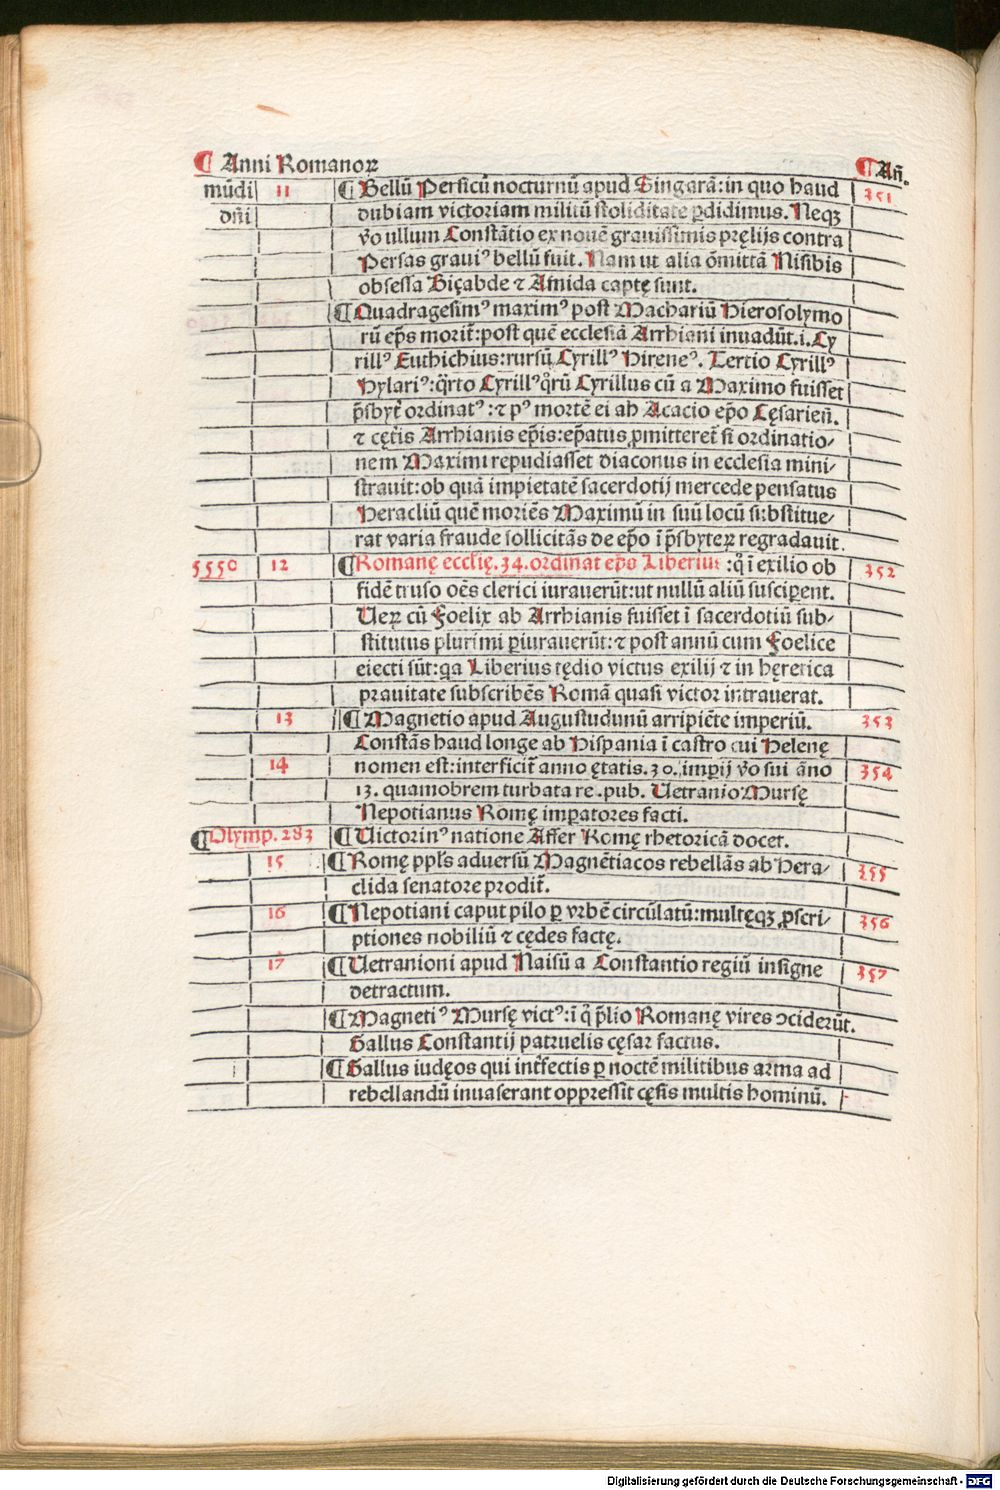 ¶ Anni Romanoꝝ ¶ Añ.
mūdi 11 ¶ Bellū Persicū nocturnū apud Singarā:in quo haud 351
dñi dubiam victoriam militū stoliditate ꝑdidimus. Neqꝫ
ṽo ullum Constātio ex nouē grauissimis pręlijs contra
Persas grauiꝰ bellū fuit. Nam ut alia ōmittā Nisibis
obsessa Biçabde ⁊ Amida captę sunt.
¶ Quadragesimꝰ maximꝰ post Machariū Hierosolymo
rū ep̄s morit̄:post quē ecclesiā Arrhiani inuadūt.i.Cy
rillꝰ Euthichius:rursū Cyrillꝰ Hireneꝰ. Tertio Cyrillꝰ
Hylariꝰ:q̄rto Cyrillꝰq̊rū Cyrillus cū a Maximo fuisset
p̄sbyt̄ ordinatꝰ:⁊ pꝰ mortē ei ab Acacio ep̄o Cęsarieñ.
⁊ cęt̄is Arrhianis ep̄is:ep̄atus ꝓmitteret̄ si ordinatio-
nem Maximi repudiasset diaconus in ecclesia mini-
strauit:ob quā impietatē sacerdotij mercede pensatus
Heracliū quē moriēs Maximū in suū locū substitue-
rat varia fraude sollicitās de ep̄o ī p̄sbyteꝝ regradauit.
5550 12 ¶ Romanę ecclię.34.ordinat ep̄s Liberius :q̊ ī exilio ob 352
fidē truso oēs clerici iurauerūt:ut nullū aliū susciꝑent.
Ueꝝ cū Foelix ab Arrhianis fuisset ī sacerdotiū sub-
stitutus plurimi ꝑiurauerūt:⁊ post annū cum Foelice
eiecti sūt:qa Liberius tędio victus exilij ⁊ in hęretica
prauitate subscribēs Romā quasi victor intrauerat.
13 ¶ Magnetio apud Augustudunū arripiēte imperiū. 353
Constās haud longe ab Hispania ī castro cui Helenę
14 nomen est:interficit̄ anno ętatis.30.imꝑij ṽo sui āno 354
13. quamobrem turbata re .pub. Uetranio Mursę
Nepotianus Romę imꝑatores facti.
¶Olymp. 283 ¶ Uictorinꝰ natione Affer Romę rhetoricā docet.
15 ¶ Romę ppl̄s aduersū Magnētiacos rebellās ab Hera- 355
clida senatore prodit̄.
16 ¶ Nepotiani caput pilo ꝑ vrbē circūlatū:multęqꝫ ꝓscri- 356
ptiones nobiliū ⁊ cędes factę.
17 ¶ Uetranioni apud Naisū a Constantio regiū insigne 357
detractum.
¶ Magnetiꝰ Mursę victꝰ:ī q̊ p̄lio Romanę vires ↄciderūt.
Gallus Constantij patruelis cęsar factus.
¶ Gallus iudęos qui int̄fectis ꝑ noctē militibus arma ad
rebellandū inuaserant oppressit cęsis multis hominū.
Digitalisierung gefördert durch die Deutsche Forschungsgemeinschaft - DFG